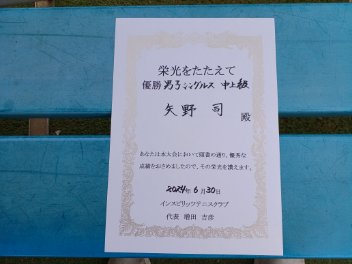 栄光をたたえて
優勝 男子シングルス 中上級
矢野 司
殿
あなたは本大会において頭書の通り、優秀な
成績をおさめましたので、その栄光を讃えます。
2024年6月30日
インスピリッツテニスクラブ
代表 増田 吉彦